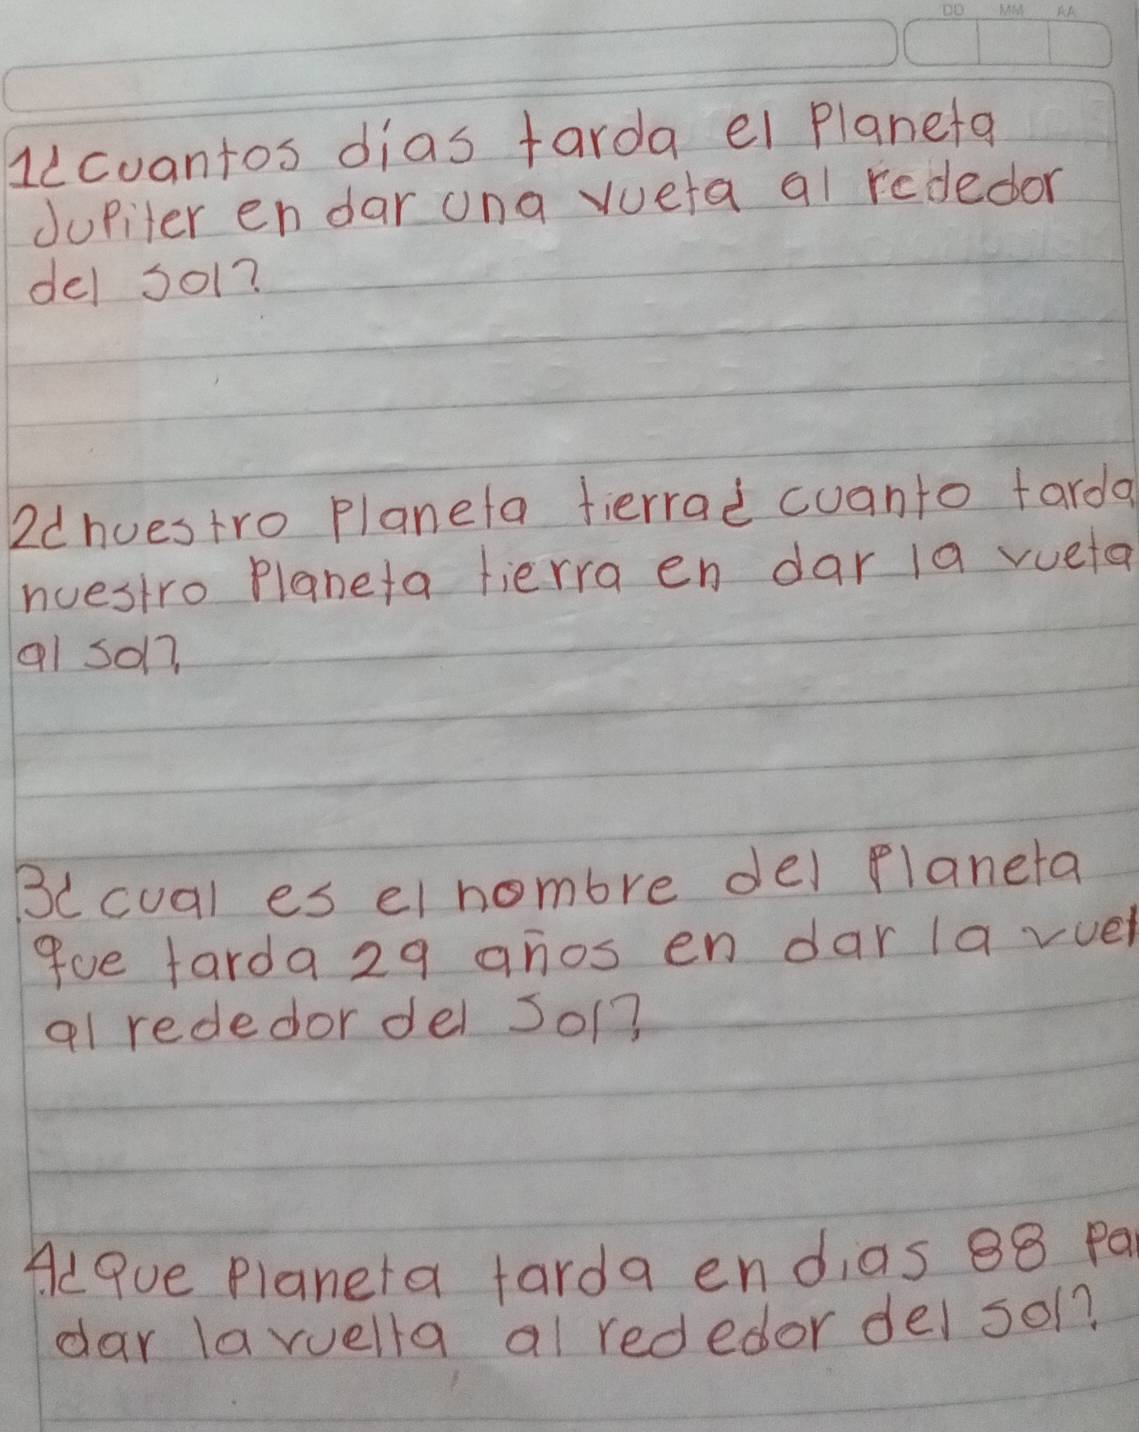 DD MM AA
1¿cuantos días tarda el Planeta
Jupiter en dar una vueta al rededor
del sol?
2¿nuestro Planeta tierra¿ cuanto tarda
nuestro Planeta tierra en dar la vueta
al sol?
3¿cual es el nombre del Planeta
que tarda 29 años en dar la vuel
al rededor del Sol?
4¿que Planeta tarda en dias 88 Par
dar la vuelta al rededor del sol?